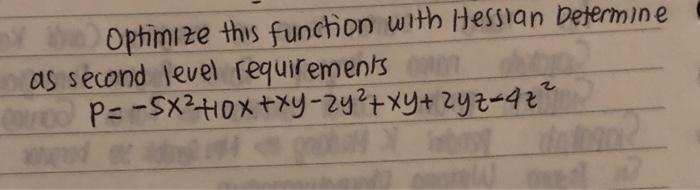 Optimize this function with Hessian Determine
as second level requirements
P=-5x²+10x+xy-2y²+xy+2yz-4z²